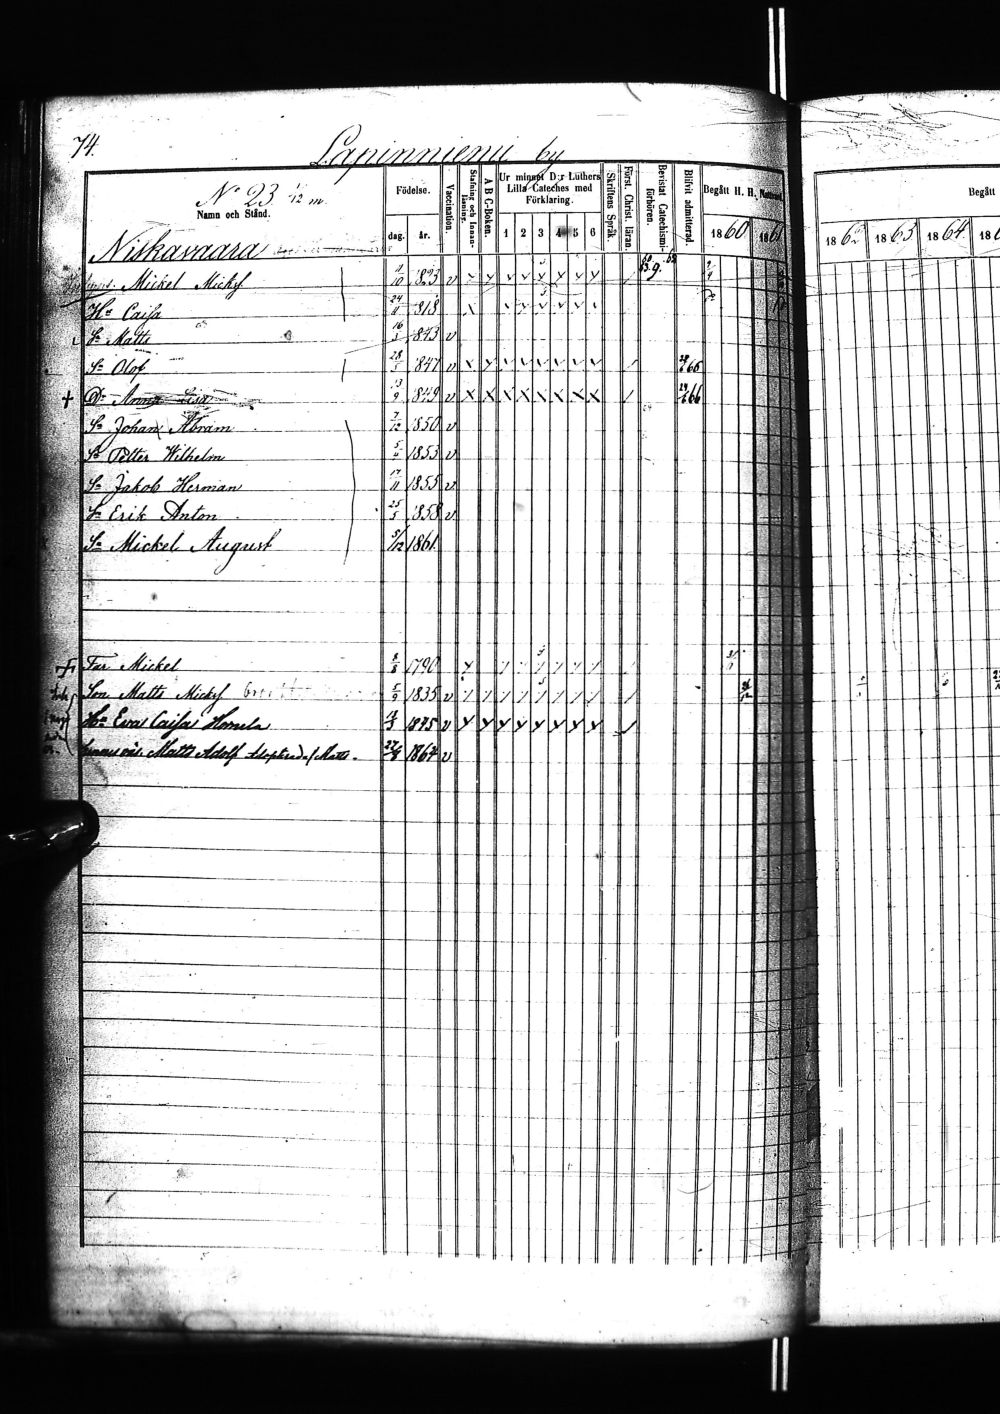 74.
Lapinniemi by
N 23 1/12 m.
Namn och Stånd.
Födelse.
dag.
år.
Vaccination.
Stafning och Innan-läsning.
A B C-Boken.
Ur minnet D:r Luthers Lilla Cateches med Förklaring.
1 2 3 4 5 6
Skriftens Språk.
Först. Christ. läran.
Bevistat Catechismi-förhören.
Blifvit admitterad.
Begått H. H. Nattvard.
1860 1861
Begått
1862 1863 1864 18
Niskavaara
Mickel Micky 11/10 1823 v
Hu Caisa 24/11 818
Sn Matts 16/3 1843 v
Sn Olof 28/5 1847 v 66
+ Dr Anna Lisa 13/9 1849 v 66
Sn Johan Abram 7/12 1850 v
Sn Petter Wilhelm 5/4 1853 v
Sn Jakob Herman 17/11 1855 v
Sn Erik Anton 25/5 1858 v
Sn Mickel August 5/12 1861
+ Far Mickel 8/8 1790
Son Matts Micky 5/9 1835 v
Hu Eva Caisa Homela 1845 v
Matts Adolf Adopterad af Matts 1864 v